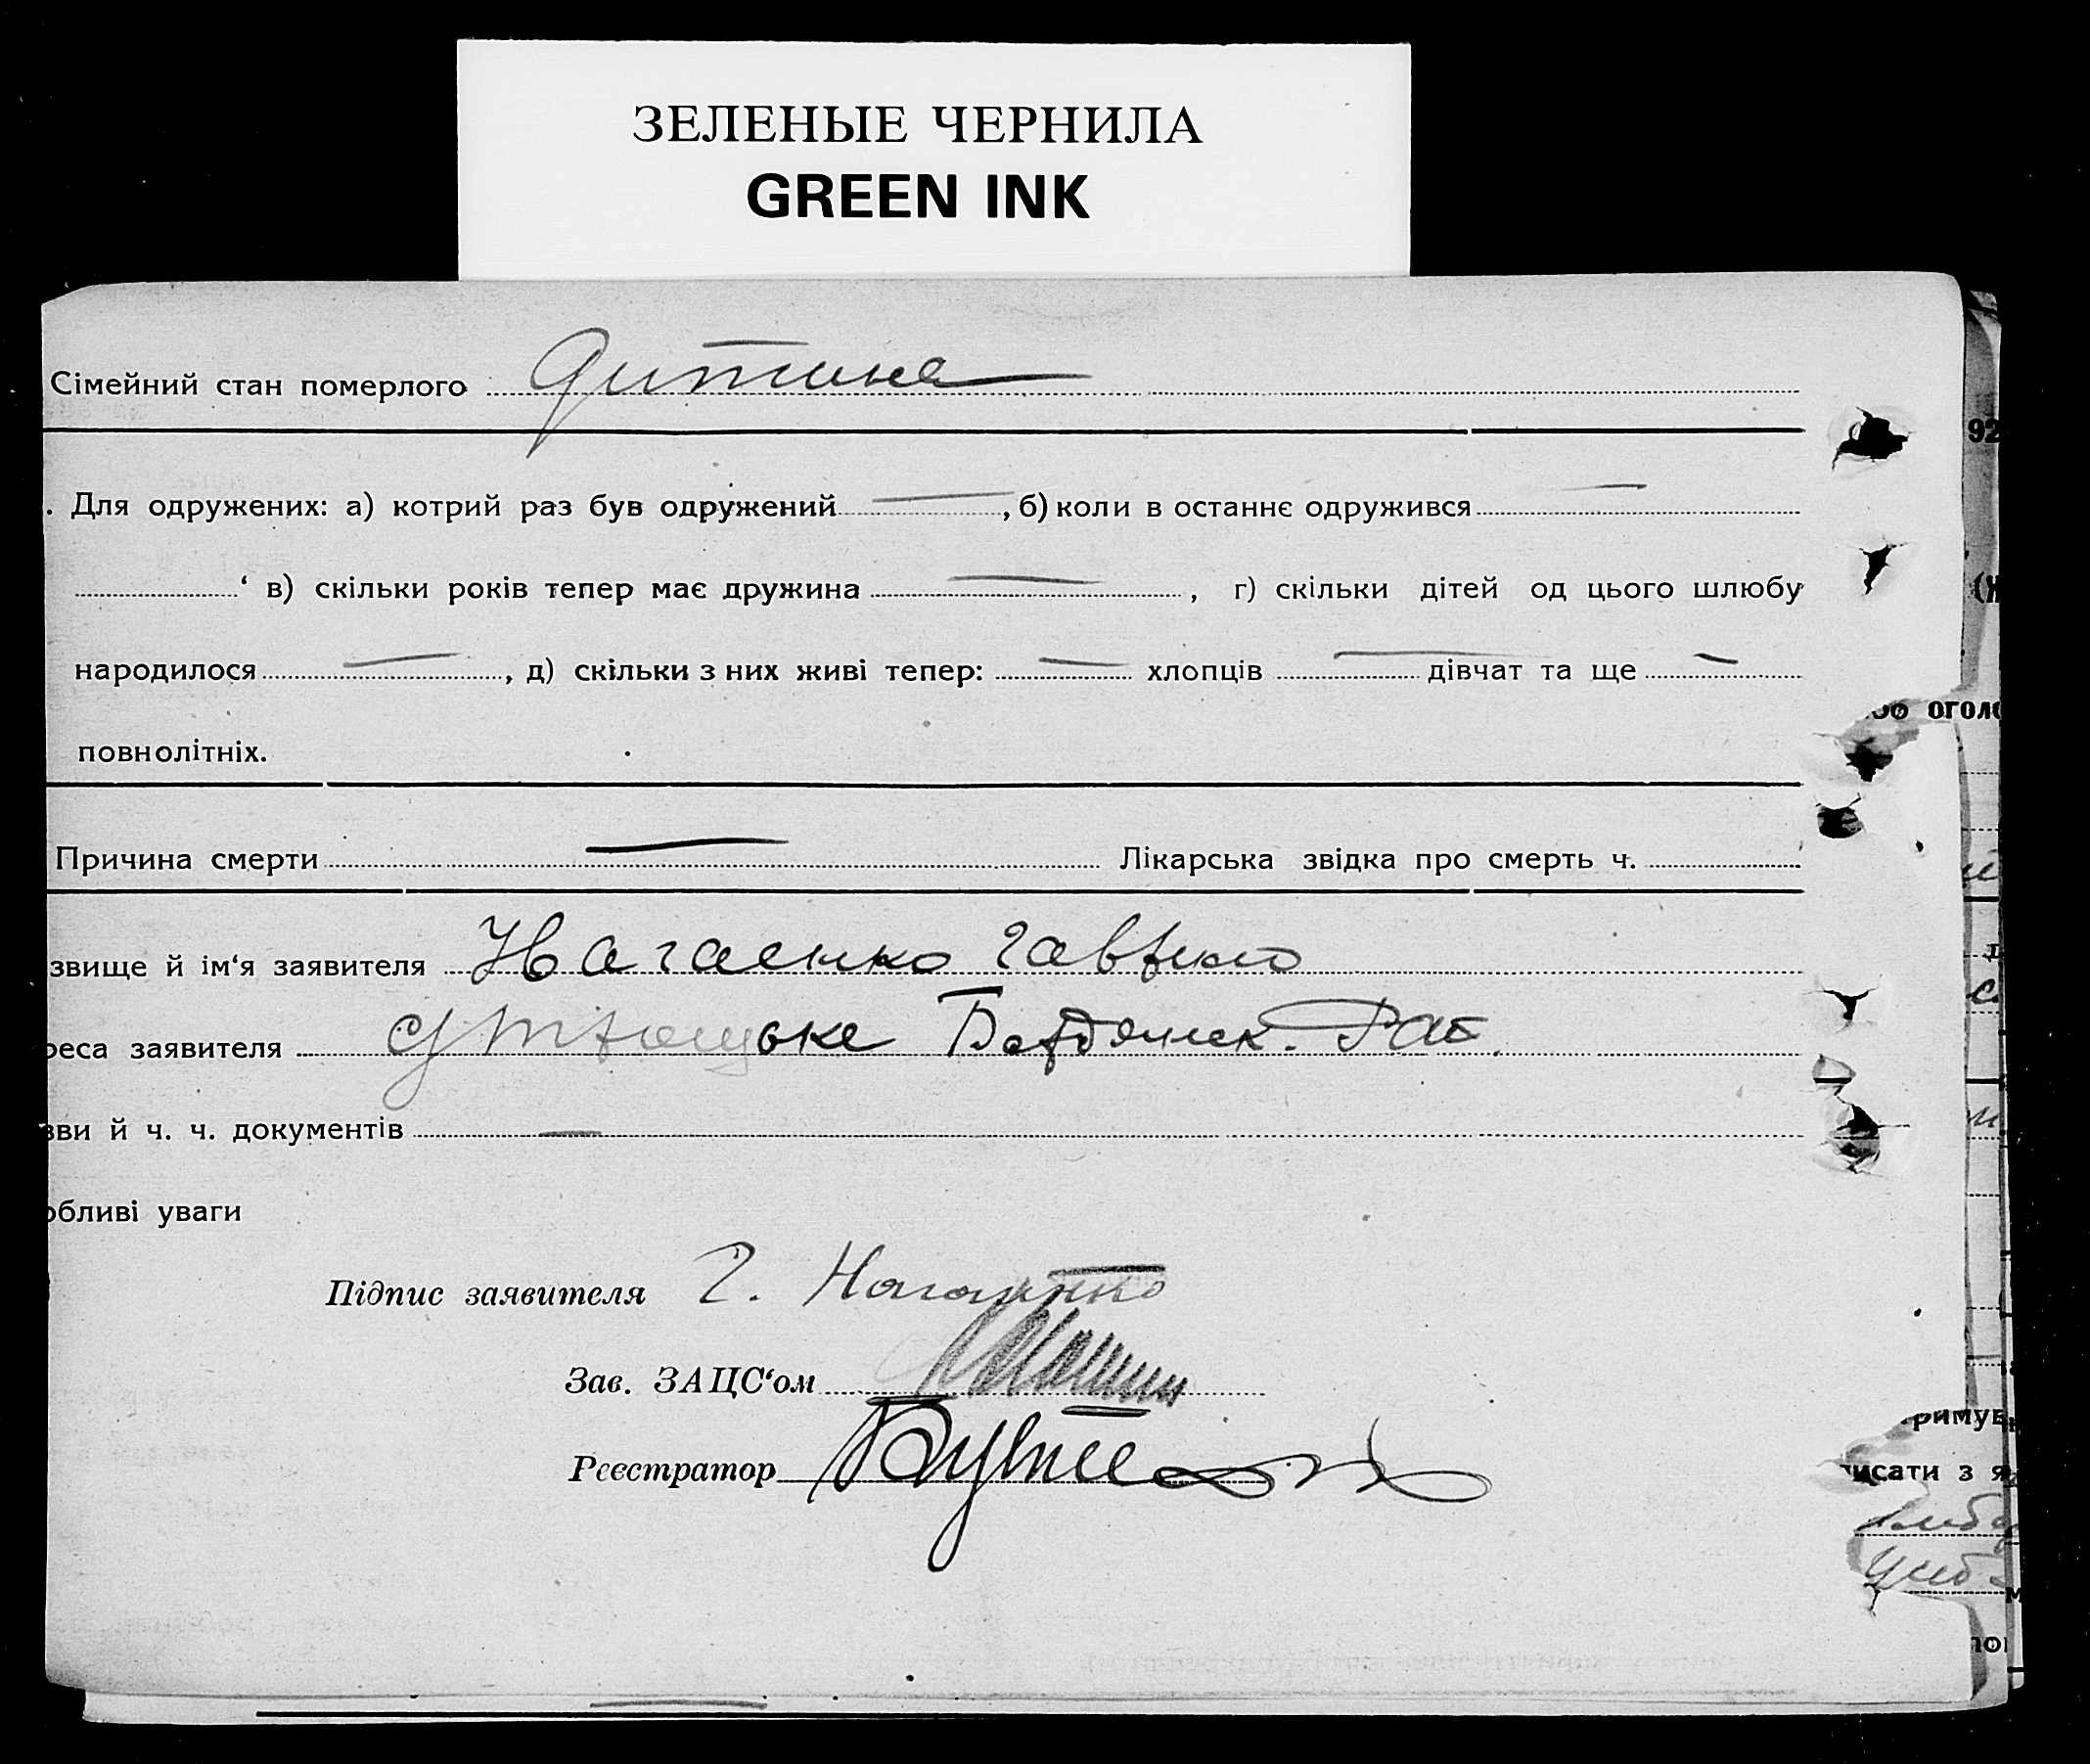 ЗЕЛЕНЫЕ ЧЕРНИЛА
GREEN INK
Сімейний стан померлого дитина
. Для одружених: а) котрий раз був одружений —, б) коли в останнє одружився —
‘ в) скільки років тепер має дружина —, г) скільки дітей од цього шлюбу
народилося —, д) скільки з них живі тепер: — хлопців — дівчат та ще —
повнолітніх.
Причина смерти — Лікарська звідка про смерть ч.
звище й ім‘я заявителя Нагаенко
реса заявителя Бердянск.
зви й ч. ч. документів —
обливі уваги
Підпис заявителя Г. Нагаенко
Зав. ЗАЦС‘ом
Реєстратор
92
оголо
римув
писати з я